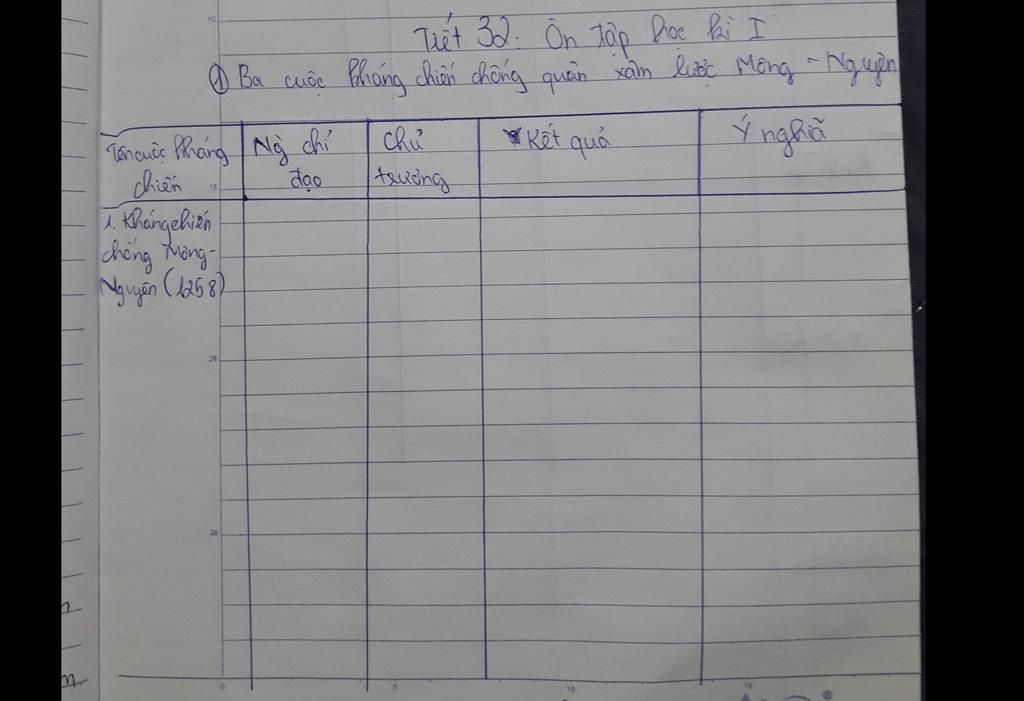 Tiết 32: Ôn tập học kì I
① Ba cuộc kháng chiến chống quân xâm lược Mông - Nguyên
Tên cuộc kháng chiến
Ng chỉ đạo
Chủ trương
Kết quả
Ý nghĩa
1. Kháng chiến
chống Mông -
Nguyên (1258)
10
15
20
25
0
5
10
15